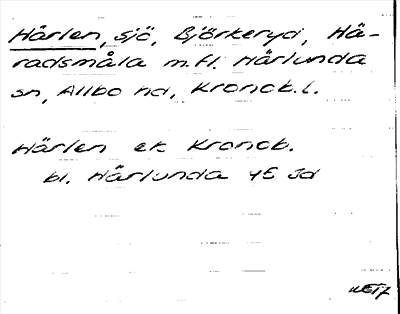 Härlen, sjö, Björkeryd, Hä-
radsmåla m.fl. Härlunda
sn, Allbo hd, Kronob.l.
Härlen ek Kronob.
bl. Härlunda 4E Jd